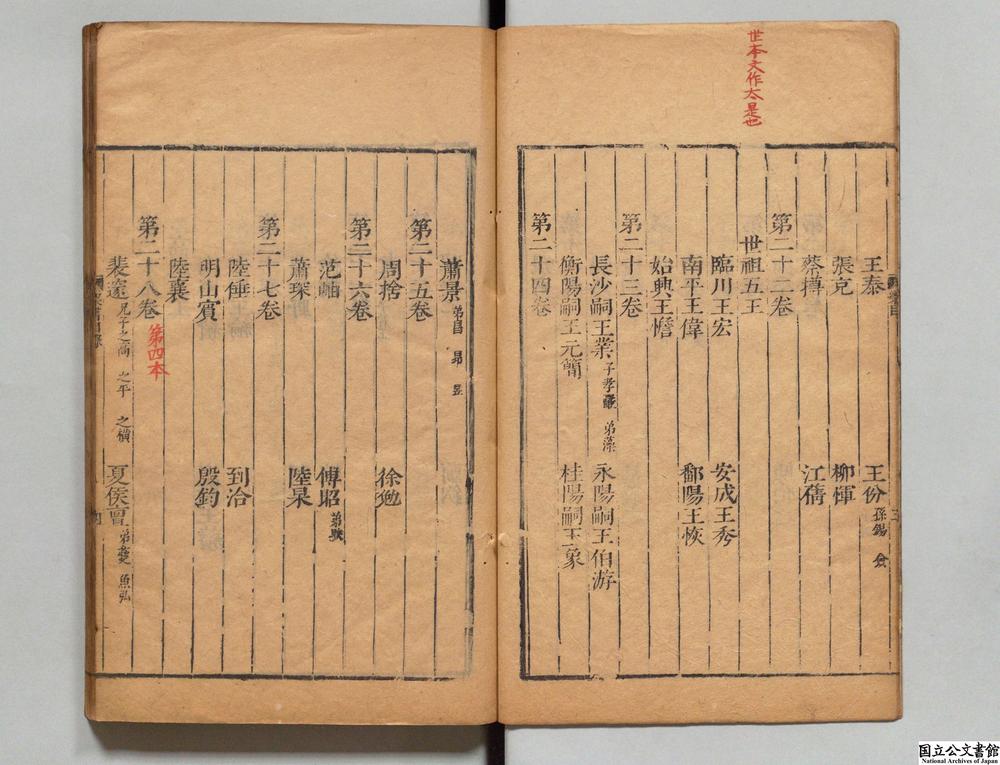 世本文作太是也
王泰 王份 孫錫 僉
張充 柳惲
蔡撙 江蒨
第二十二卷
世祖五王
臨川王宏 安成王秀
南平王偉 鄱陽王恢
始興王憺
第二十三卷
長沙嗣王業 子孝儼 弟藻 永陽嗣王伯游
衡陽嗣王元簡 桂陽嗣王象
第二十四卷
蕭景 弟昌 昂 昱
第二十五卷
周捨 徐勉
第二十六卷
范岫 傅昭 弟映
蕭琛 陸杲
第二十七卷
陸倕 到洽
明山賓 殷鈞
陸襄
第二十八卷
第四本
裴邃 兄子之高 之平 之橫 夏侯亶 弟夔 魚弘
国立公文書館
National Archives of Japan